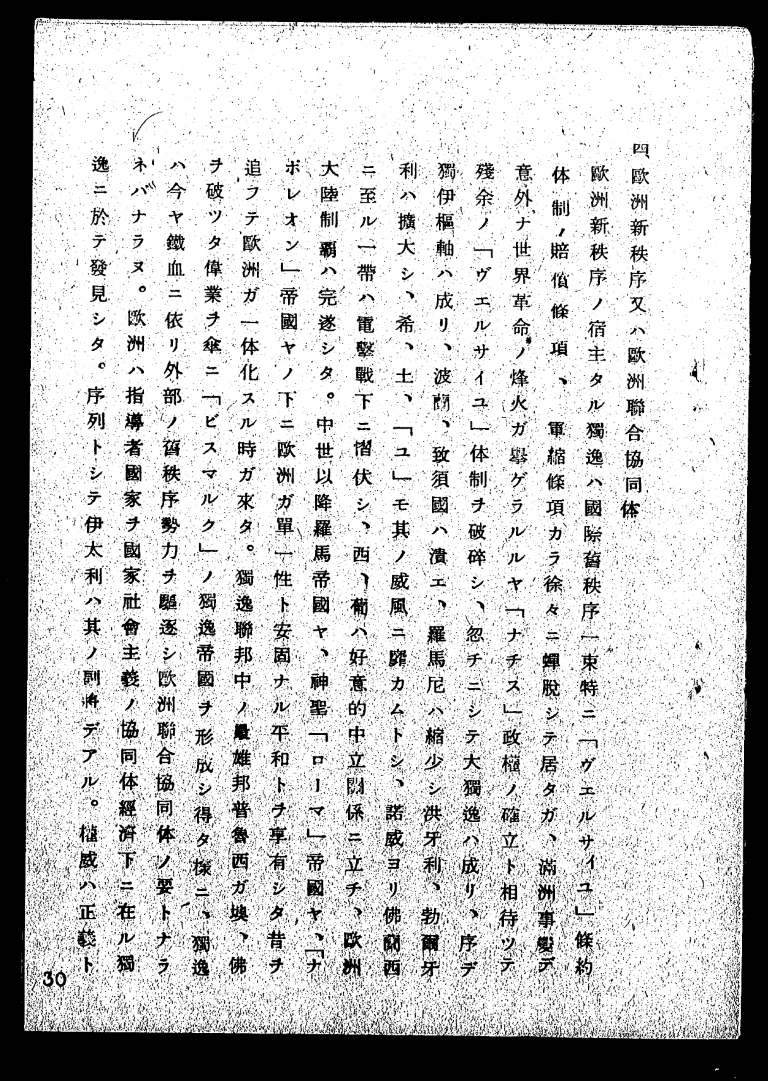 四、歐洲新秩序又ハ歐洲聯合協同体
歐洲新秩序ノ宿主タル獨逸ハ國際舊秩序一束特ニ「ヴエルサイユ」條約
体制ノ賠償條項、軍縮條項カラ徐々ニ蟬脫シテ居タガ、滿洲事變デ
意外ナ世界革命ノ烽火ガ擧ゲラルルヤ「ナチス」政權ノ確立ト相待ツテ
殘余ノ「ヴエルサイユ」体制ヲ破碎シ、忽チニシテ大獨逸ハ成リ、序デ
獨伊樞軸ハ成リ、波蘭、致須國ハ潰エ、羅馬尼ハ縮少シ洪牙利、勃爾牙
利ハ擴大シ、希、土、「ユ」モ其ノ威風ニ靡カムトシ、諾威ヨリ佛蘭西
ニ至ル一帶ハ電擊戰下ニ慴伏シ、西、葡ハ好意的中立關係ニ立チ、歐洲
大陸制覇ハ完遂シタ。中世以降羅馬帝國ヤ、神聖「ローマ」帝國ヤ、「ナ
ポレオン」帝國ヤノ下ニ歐洲ガ單一性ト安固ナル平和トヲ享有シタ昔ヲ
追フテ歐洲ガ一体化スル時ガ來タ。獨逸聯邦中ノ最雄邦普魯西ガ埃、佛
ヲ破ツタ偉業ヲ傘ニ「ビスマルク」ノ獨逸帝國ヲ形成シ得タ樣ニ、獨逸
ハ今ヤ鐵血ニ依リ外部ノ舊秩序勢力ヲ驅逐シ歐洲聯合協同体ノ要トナラ
ネバナラヌ。歐洲ハ指導者國家ヲ國家社會主義ノ協同体經濟下ニ在ル獨
逸ニ於テ發見シタ。序列トシテ伊太利ハ其ノ副將デアル。權威ハ正義ト
30